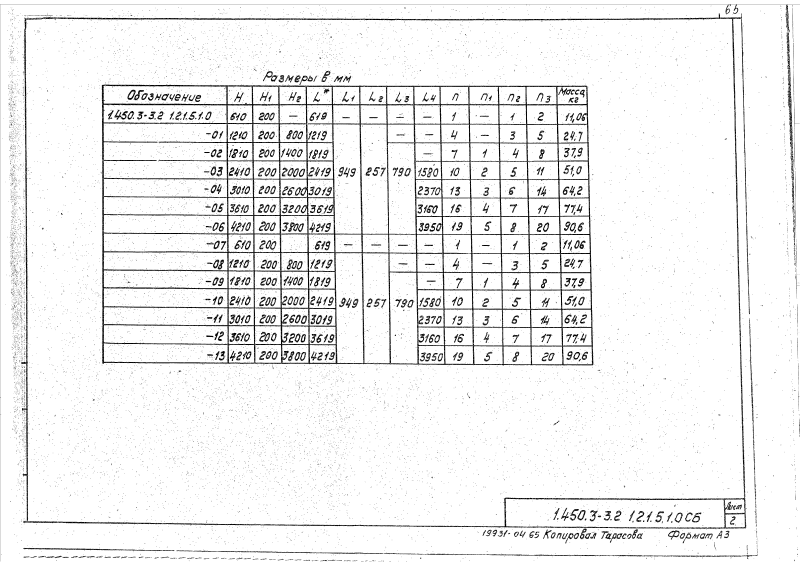 65
Размеры в мм
Обозначение H H1 H2 L* L1 L2 L3 L4 n n1 n2 n3 Масса кг
1.450.3-3.2 1.2.1.5.1.0 610 200 — 619 — — — — 1 — 1 2 11,06
-01 1210 200 800 1219 — — 4 — 3 5 24,7
-02 1810 200 1400 1819 — 7 1 4 8 37,9
-03 2410 200 2000 2419 949 257 790 1580 10 2 5 11 51,0
-04 3010 200 2600 3019 2370 13 3 6 14 64,2
-05 3610 200 3200 3619 3160 16 4 7 17 77,4
-06 4210 200 3800 4219 3950 19 5 8 20 90,6
-07 610 200 619 — — — — 1 — 1 2 11,06
-08 1210 200 800 1219 — — 4 — 3 5 24,7
-09 1810 200 1400 1819 — 7 1 4 8 37,9
-10 2410 200 2000 2419 949 257 790 1580 10 2 5 11 51,0
-11 3010 200 2600 3019 2370 13 3 6 14 64,2
-12 3610 200 3200 3619 3160 16 4 7 17 77,4
-13 4210 200 3800 4219 3950 19 5 8 20 90,6
1.450.3-3.2 1.2.1.5.1.0 СБ
Лист
2
19931-04 65 Копировал Тарасова Формат А3